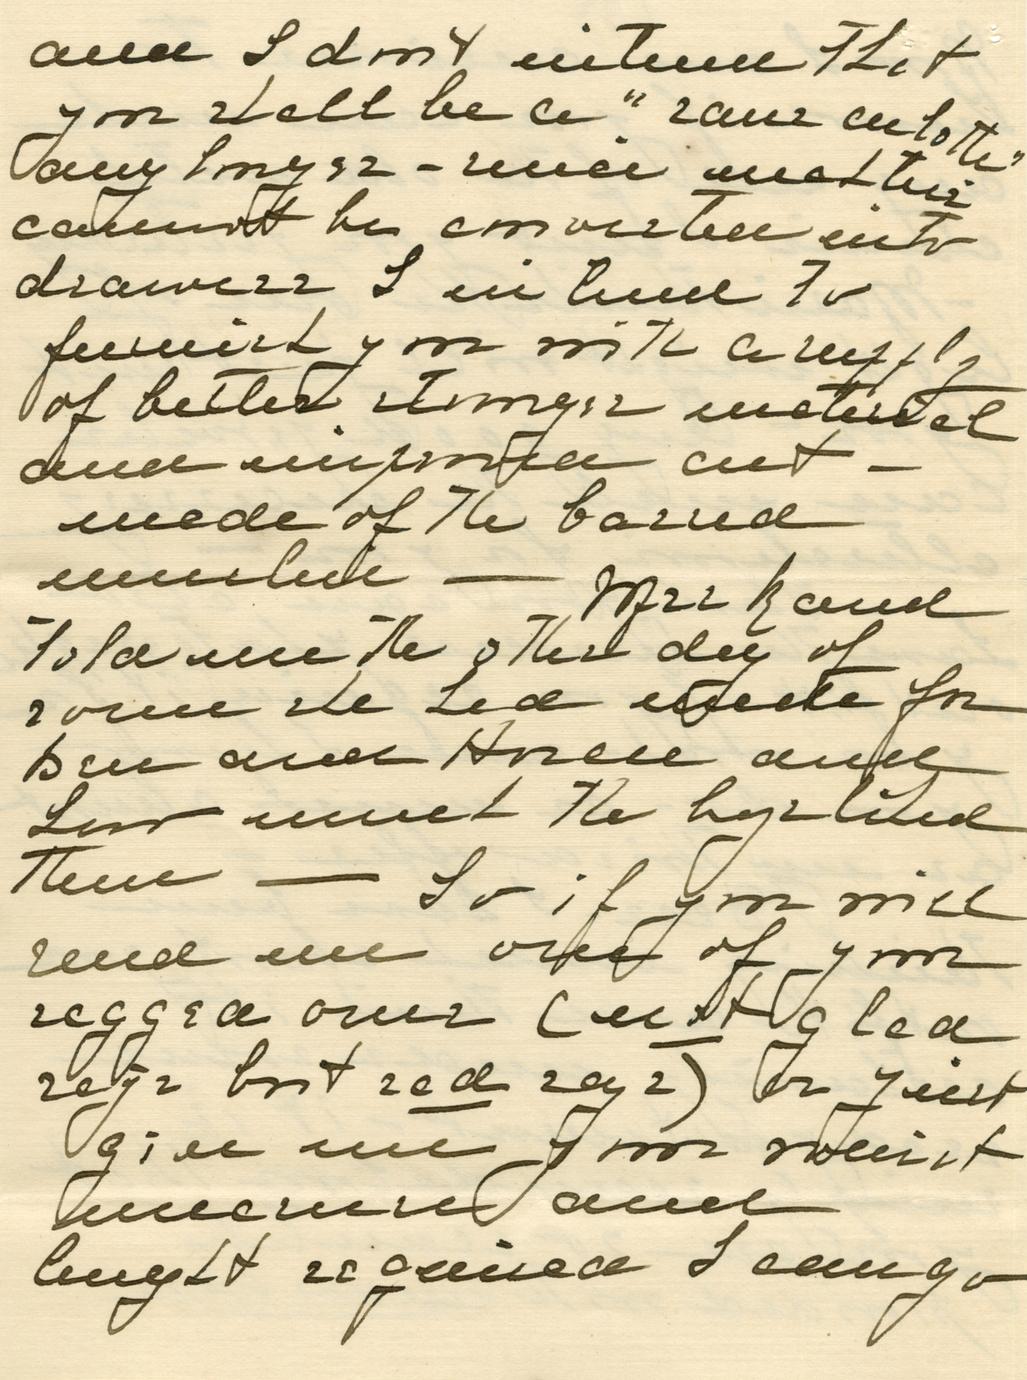 and I don't intend that
you shall be a "sans culotte"
any longer - since neckties
cannot be converted into
drawers I intend to
furnish you with a supply
of better stronger material
and improved cut -
made of the barred
muslin — Mrs Rand
told me the other day of
some she had made for
Ben and Horace and
how much they liked
them — So if you will
send me one of your
ragged ones (not glad
rags but sad rags) or just
give me your waist
measure and
length required I can go